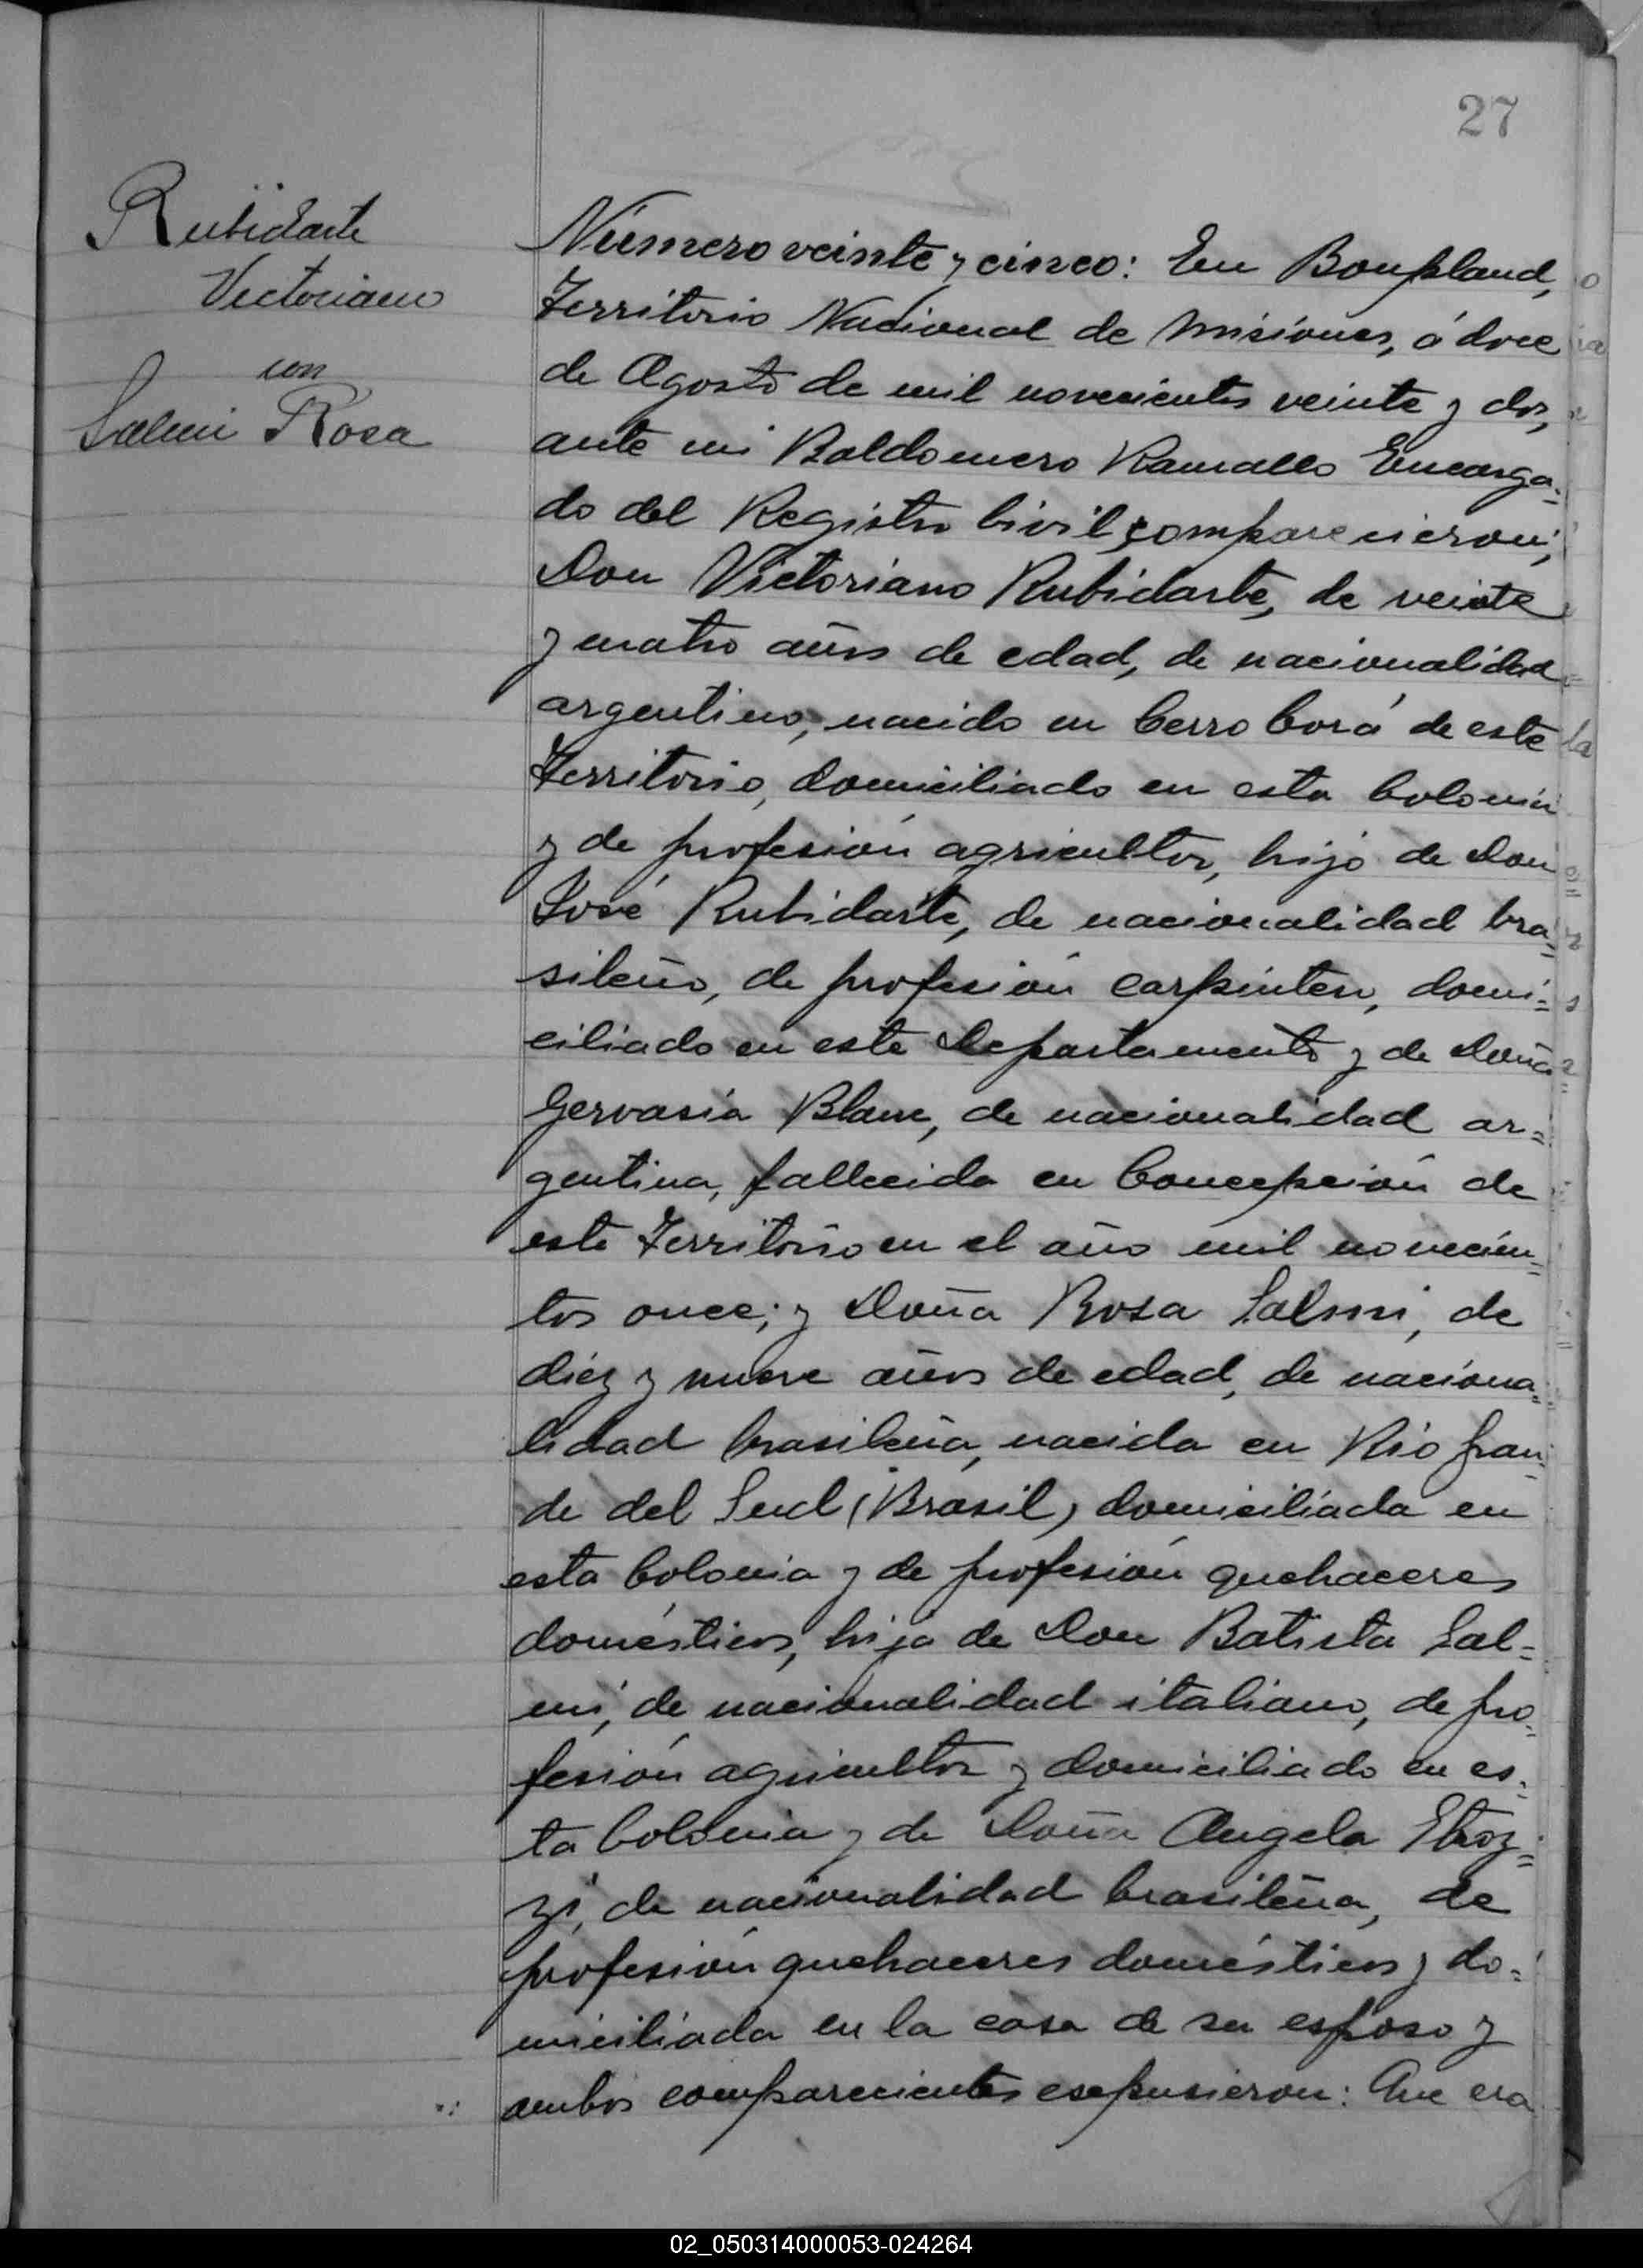 27
Rubidarte
Victoriano
con
Salmi Rosa
Número veinte y cinco: En Bonpland,
Territorio Nacional de Misiones, á doce
de Agosto de mil novecientos veinte y dos,
ante mi Baldomero Ramallo Encarga-
do del Registro Civil, comparecieron;
Don Victoriano Rubidarte, de veinte
y cuatro años de edad, de nacionalidad
argentino, nacido en Cerro Corá de este
Territorio, domiciliado en esta Colonia
y de profesión agricultor, hijo de Don
José Rubidarte, de nacionalidad bra-
sileño, de profesión carpintero, domi-
ciliado en este Departamento y de Doña
Gervasia Blanc, de nacionalidad ar-
gentina, fallecida en Concepción de
este Territorio en el año mil novecien-
tos once; y Doña Rosa Salmi, de
diez y nueve años de edad, de naciona-
lidad brasileña, nacida en Rio Gran-
de del Sud (Brasil) domiciliada en
esta Colonia y de profesión quehaceres
domésticos, hija de Don Batista Sal-
mi, de nacionalidad italiano, de pro-
fesión agricultor y domiciliado en es-
ta Colonia y de Doña Angela
de nacionalidad brasileña, de
profesión quehaceres domésticos y do-
miciliada en la casa de su esposo y
ambos comparecientes expusieron: Que era
02_050314000053-024264